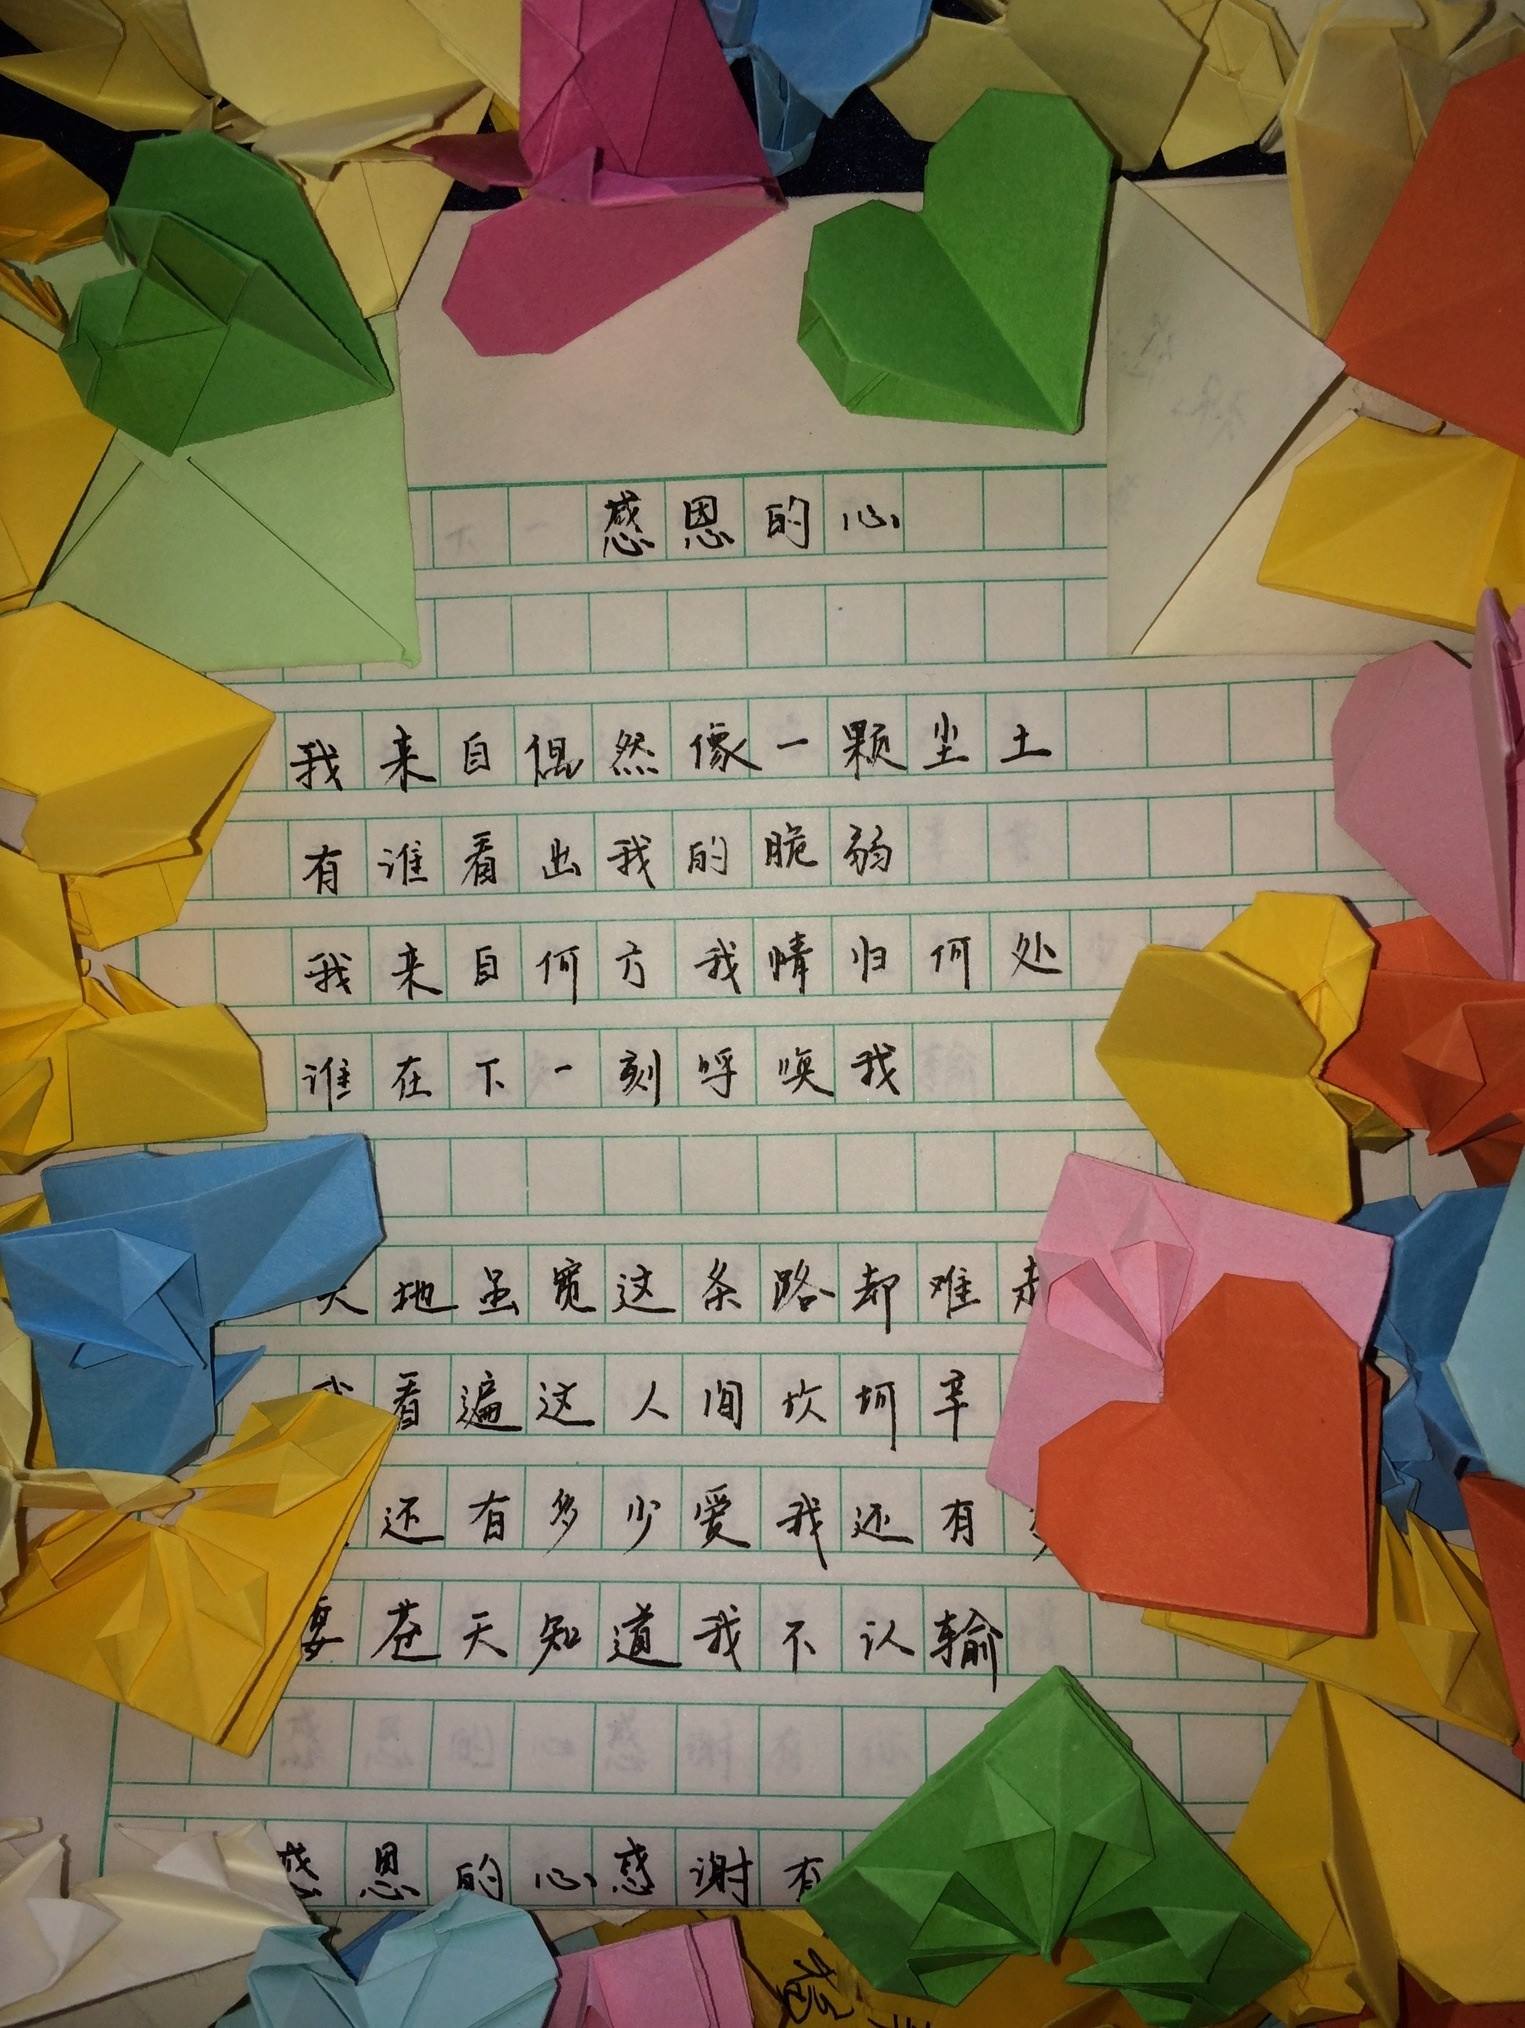 感恩的心
我来自偶然像一颗尘土
有谁看出我的脆弱
我来自何方我情归何处
谁在下一刻呼唤我
天地虽宽这条路却难走
我看遍这人间坎坷辛
还有多少爱我还有
要苍天知道我不认输
感恩的心感谢有